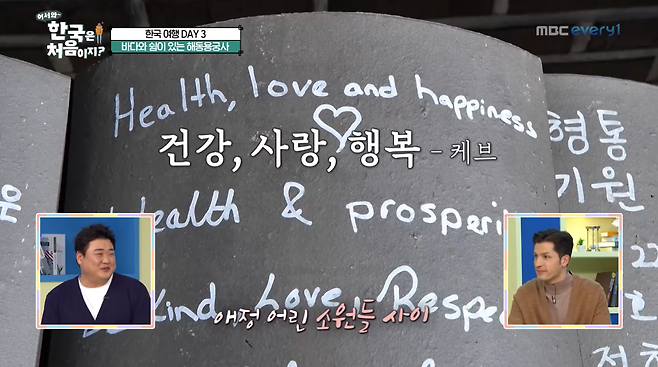 어서와~
한국은
처음이지?
한국 여행 DAY 3
바다와 쉼이 있는 해동용궁사
MBC every1
Health, love and happiness
건강, 사랑, 행복 - 케브
Health & prosperi
Kind, Love, Respec
애정 어린 소원들 사이
형통
기원
22
호